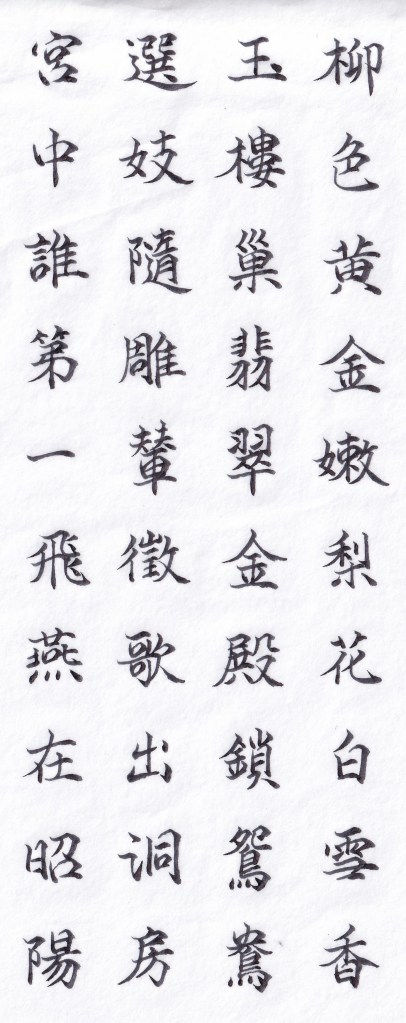 柳色黄金嫩梨花白雪香
玉樓巢翡翠金殿鎖鴛鴦
選妓隨雕輦徵歌出洞房
宮中誰第一飛燕在昭陽